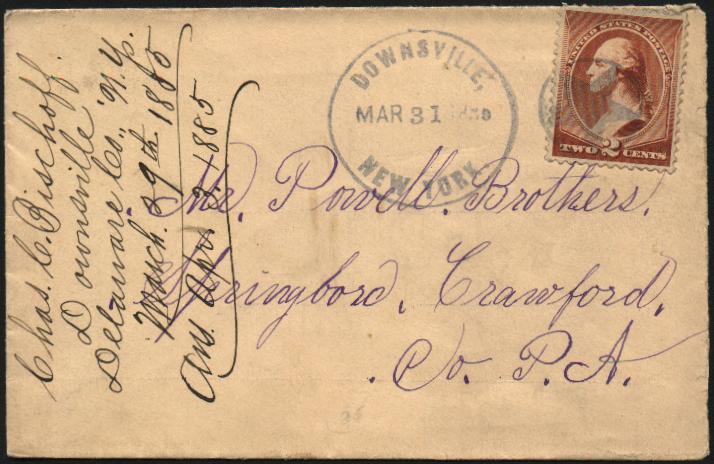 Chas. C. Bischoff.
Downsville
Delaware Co., N.Y.
March. 29th 1885
Ans. Apr. 3. 1885
DOWNSVILLE,
MAR 31
NEW YORK.
UNITED STATES POSTAGE
TWO 2 CENTS
Mr. Powell. Brothers.
Springboro, Crawford,
. Co. P.A.